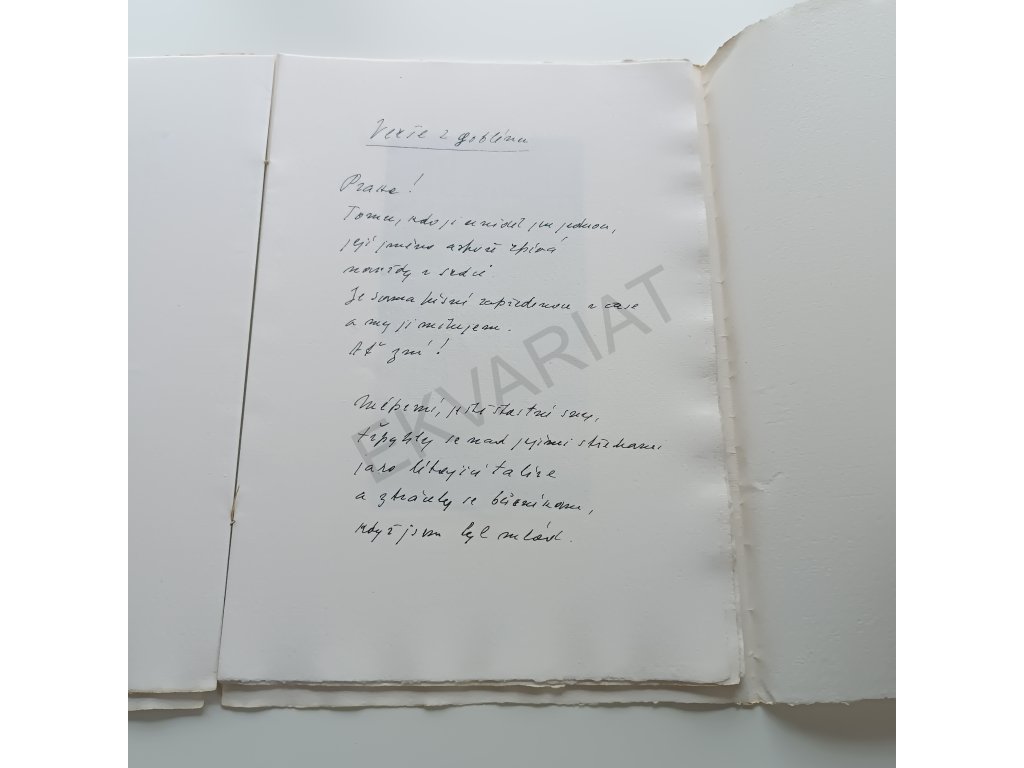 Verše z gobelínu
Praha!
Tomu, kdo ji uviděl jen jednou,
její jméno aspoň zpívá
navždy v srdci.
Je sama písní zapředenou v čase
a my ji milujem.
Ať zní!
Mé první, ještě šťastné sny,
třpytily se nad jejími střechami
jako létající talíře
a ztrácely se bůhvíkam,
když jsem byl mlád.
EKVARIAT